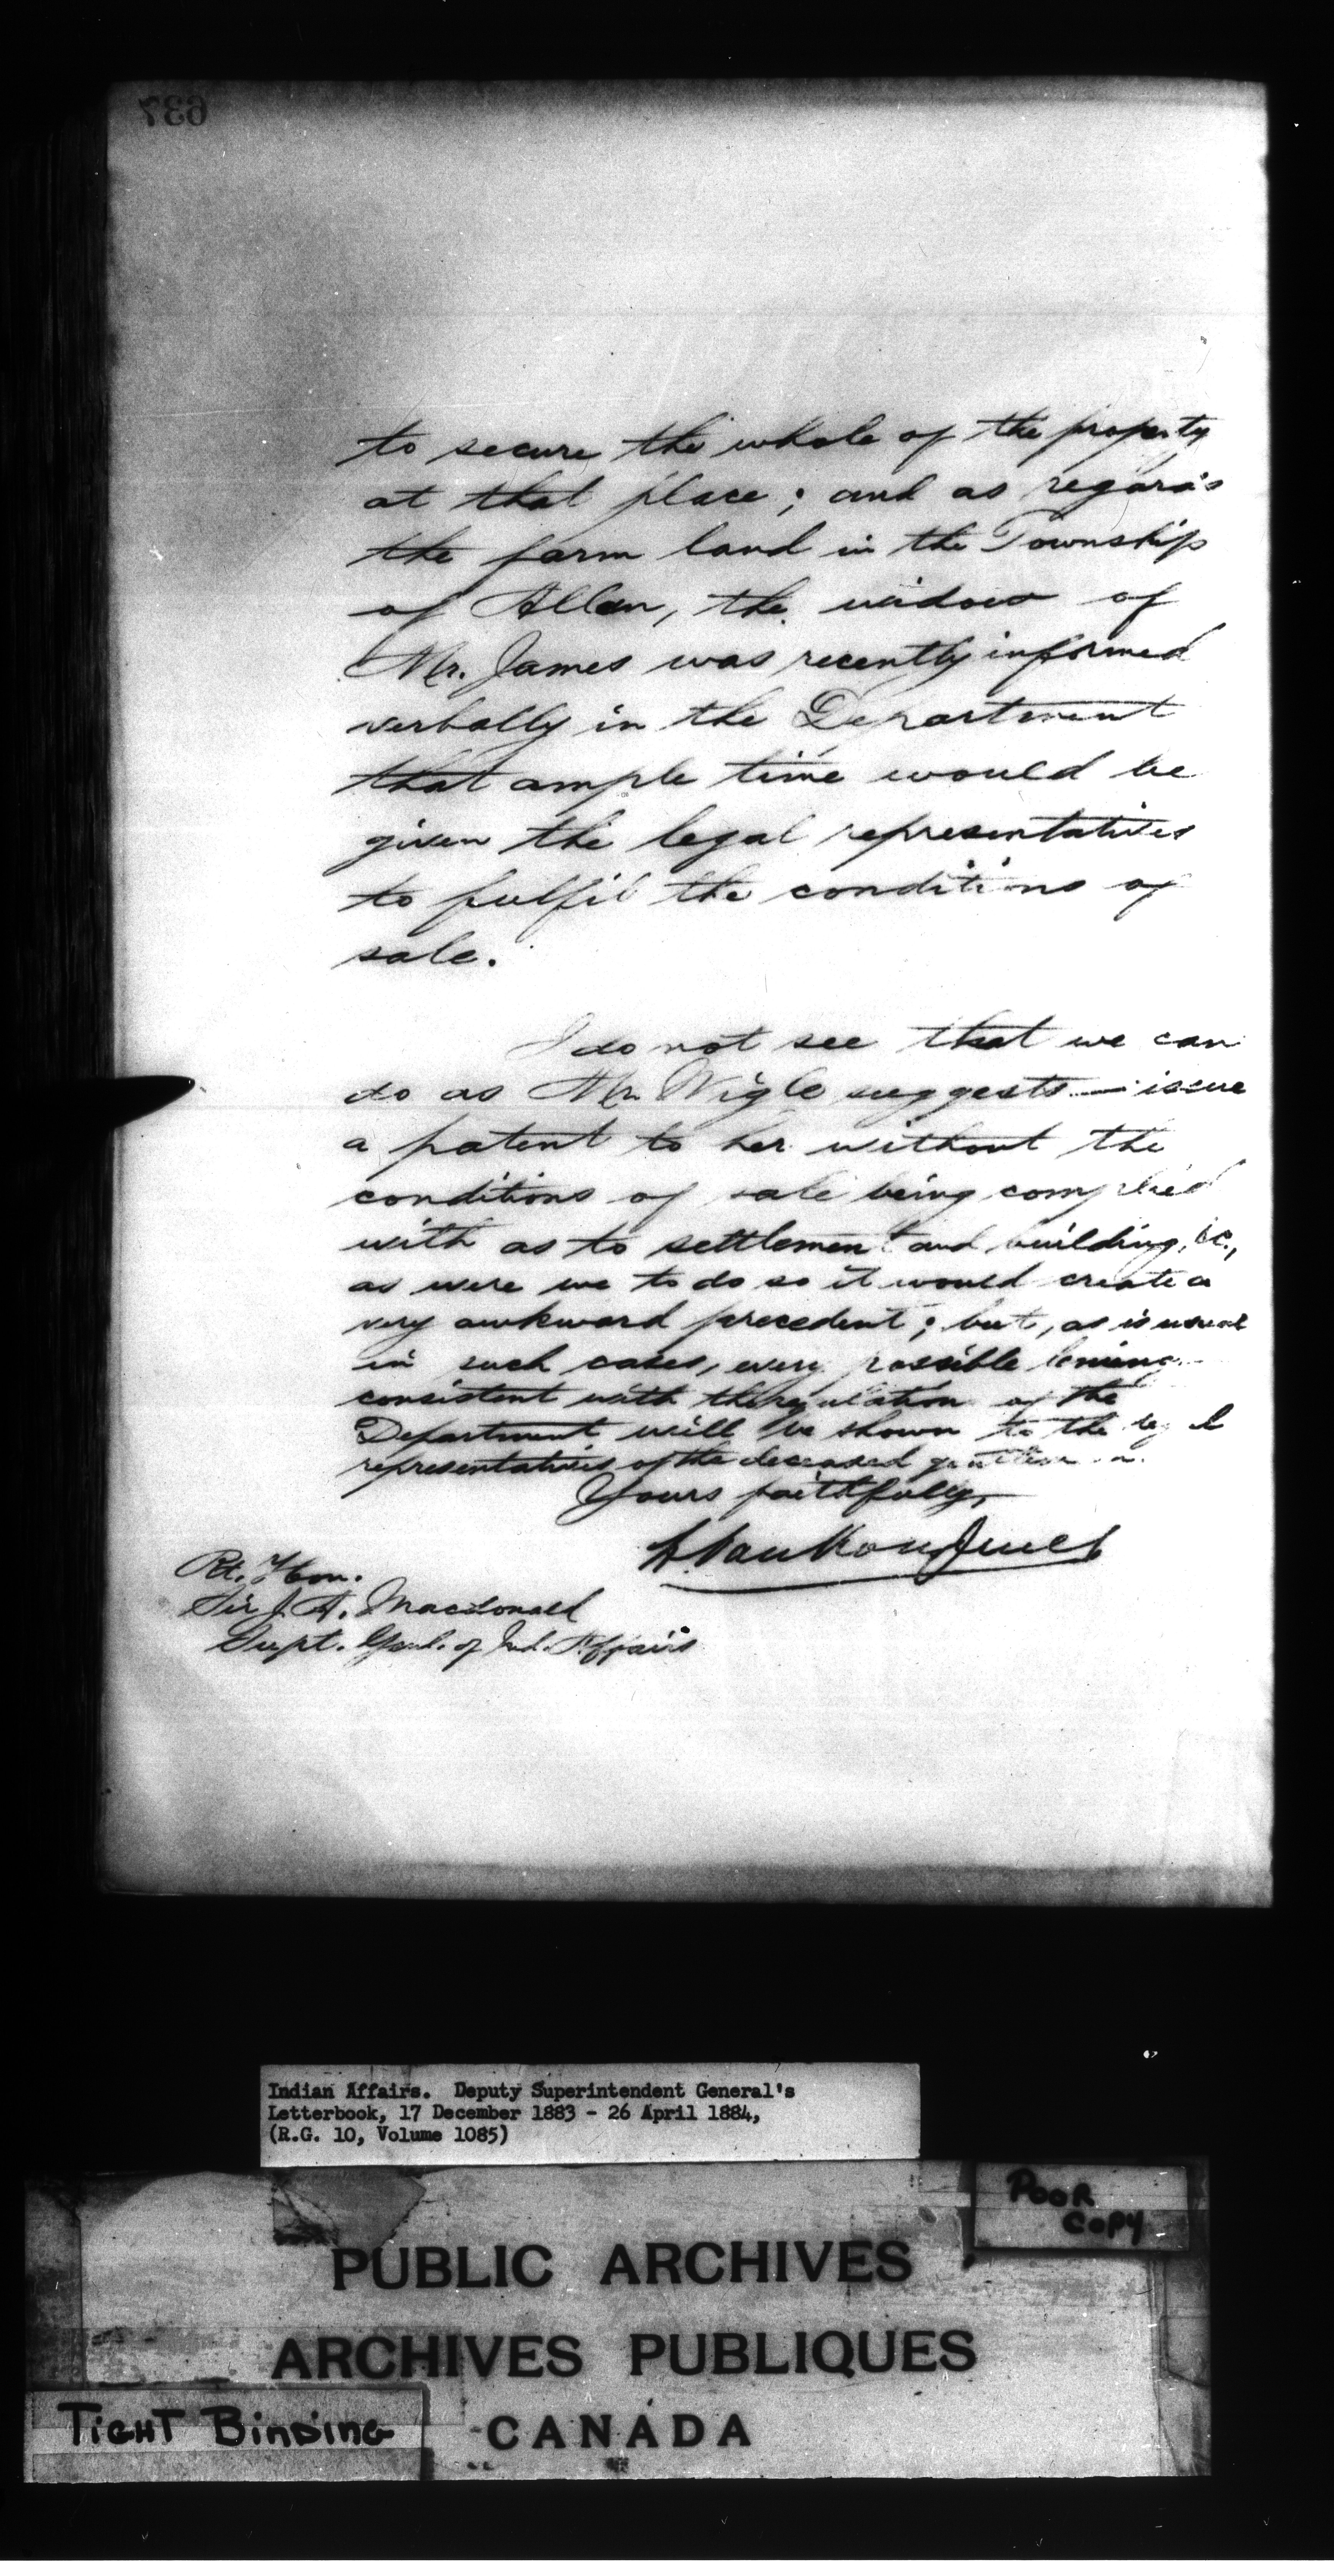 637
to secure the whole of the property
at that place; and as regards
the farm land in the Township
of Allan, the widow of
Mr. James was recently informed
verbally in the Department
that ample time would be
given the legal representatives
to fulfil the conditions of
sale.
I do not see that we can
do as Mr. Wigle suggests — issue
a patent to her without the
conditions of sale being complied
with as to settlement and building, &c.,
as were we to do so it would create a
very awkward precedent; but, as is usual
in such cases, every possible
consistent with the regulation of the
Department will be shown to the legal
representatives of the deceased gentleman.
Yours faithfully,
L. VanKoughnet
Rt. Hon.
Sir J. A. Macdonald
Supt. Genl. of Ind. Affairs
Indian Affairs. Deputy Superintendent General's
Letterbook, 17 December 1883 - 26 April 1884,
(R.G. 10, Volume 1085)
POOR
COPY
PUBLIC ARCHIVES
ARCHIVES PUBLIQUES
TIGHT BINDING
CANADA